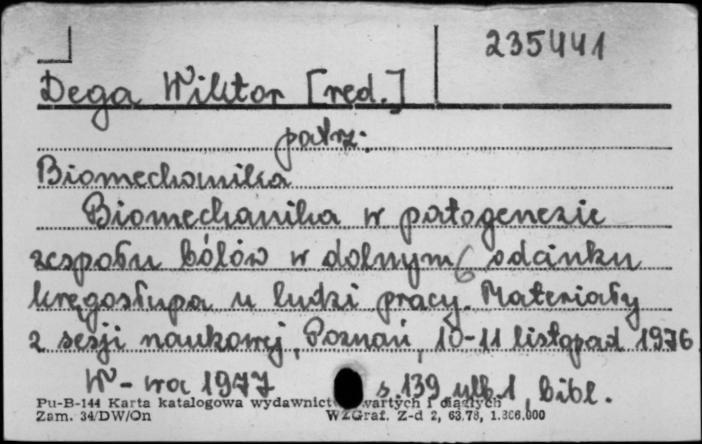 235441
Dega Wiktor [red.]
patrz:
Biomechanika
Biomechanika w patogenezie
zespołu bólów w dolnym odcinku
kręgosłupa u ludzi pracy. Materiały
z sesji naukowej, Poznań, 10-11 listopad 1976
W-wa 1977 s. 139, nlb. 1, bibl.
Pu-B-144 Karta katalogowa wydawnict wartych i ciągłych
Zam. 34/DW/On WZGraf. Z-d 2, 63,78, 1.306,000